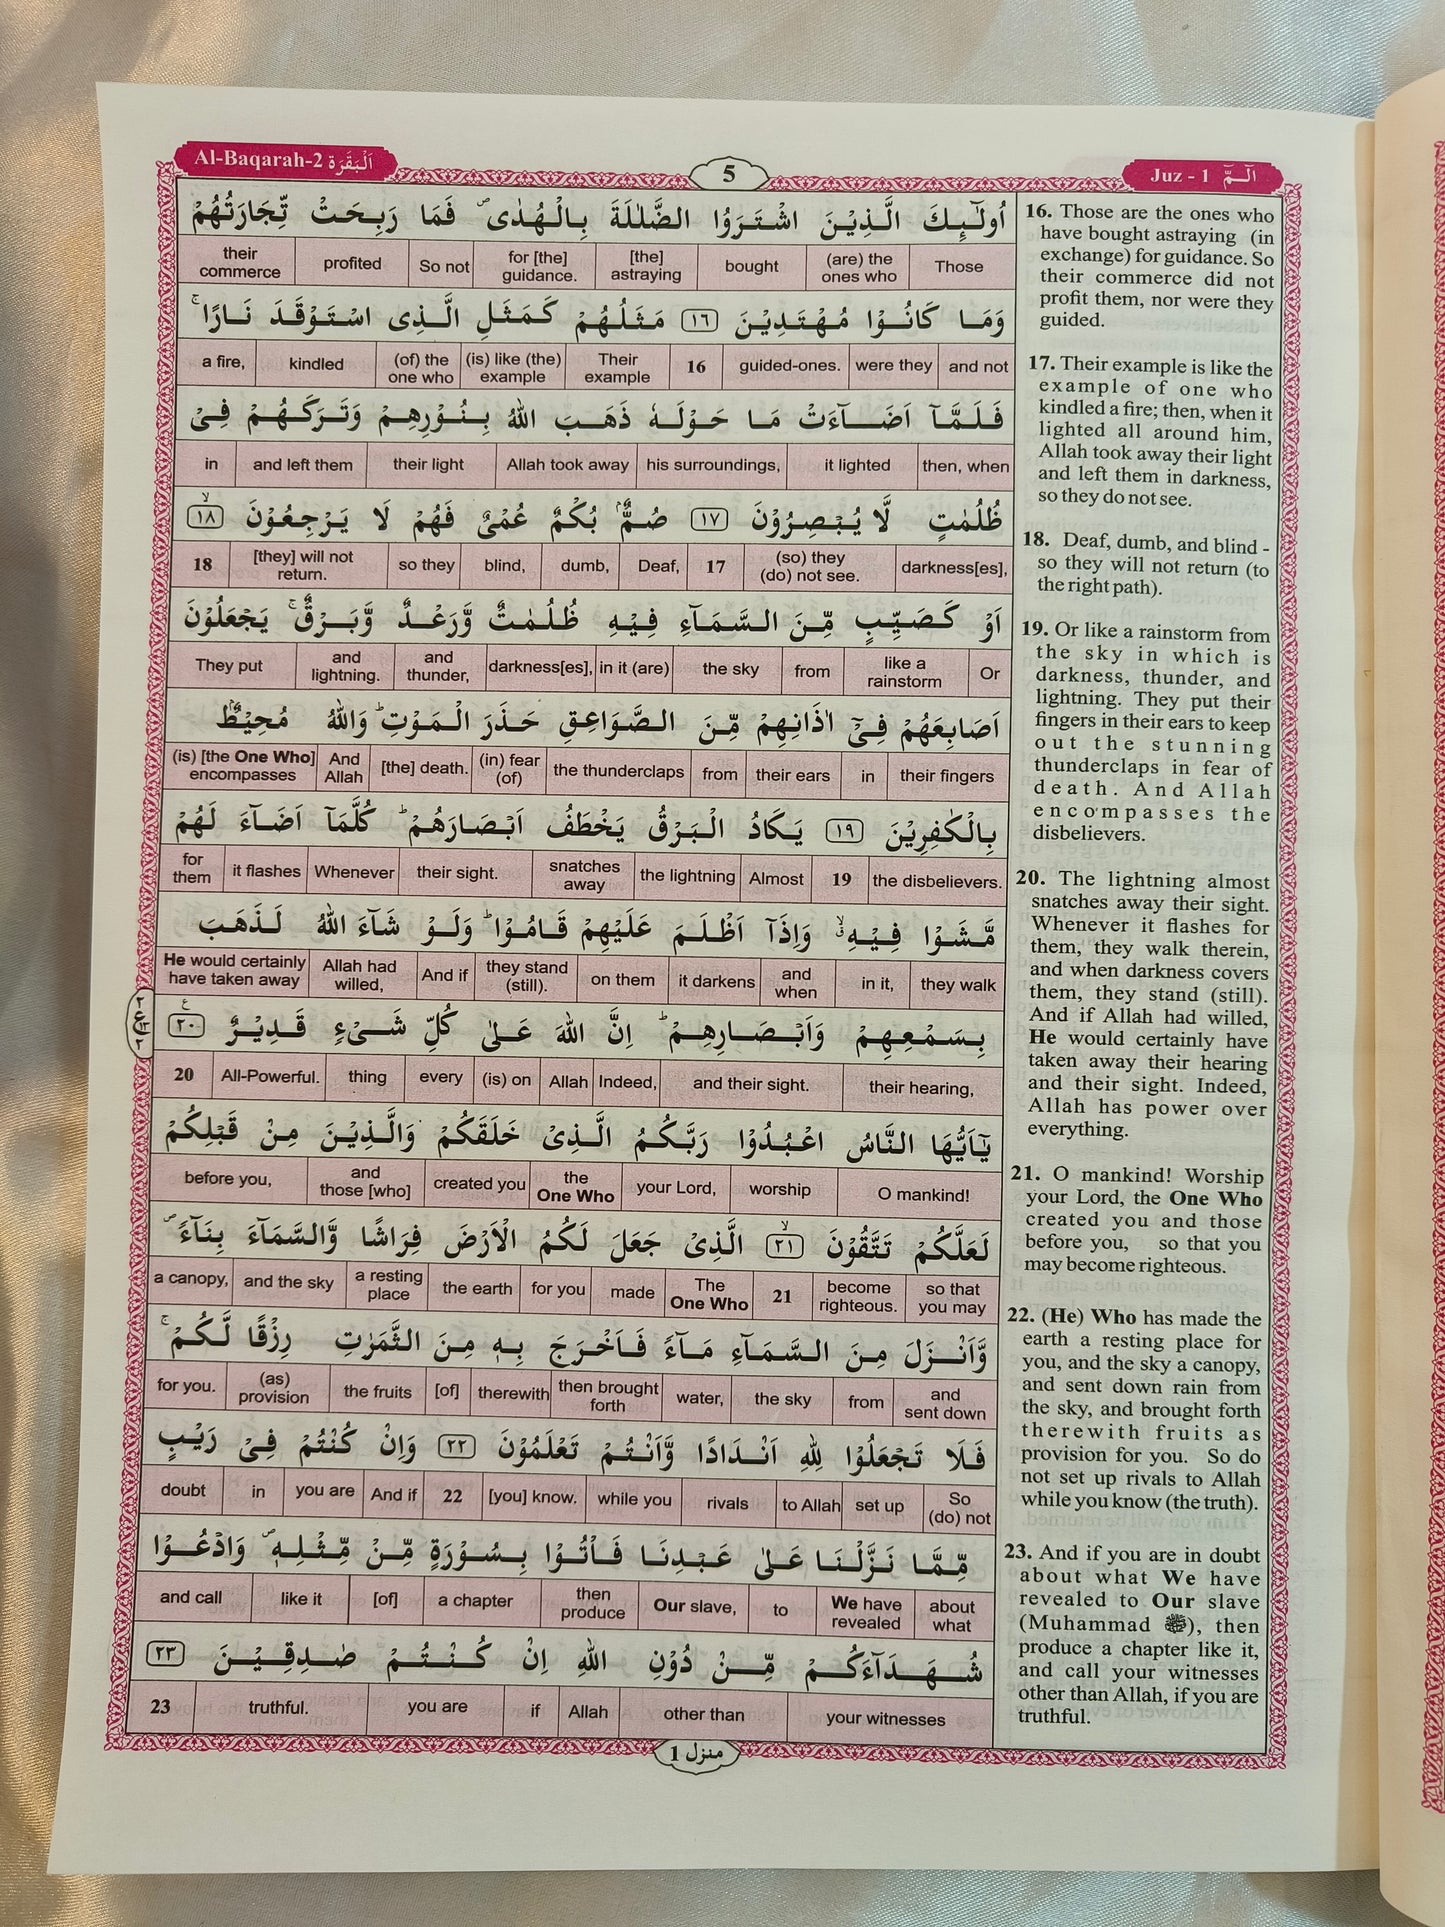 Al-Baqarah-2 اَلْبَقَرَة
5
Juz - 1 الٓـمّٓ
اُولٰٓئِكَ الَّذِیْنَ اشْتَرَوُا الضَّلٰلَةَ بِالْهُدٰی ۪ فَمَا رَبِحَتْ تِّجَارَتُهُمْ
Those | (are) the ones who | bought | [the] astraying | for [the] guidance. | So not | profited | their commerce
وَمَا كَانُوْا مُهْتَدِیْنَ ١٦ مَثَلُهُمْ كَمَثَلِ الَّذِی اسْتَوْقَدَ نَارًا ۚ
and not | were they | guided-ones. | 16 | Their example | (is) like (the) example | (of) the one who | kindled | a fire,
فَلَمَّاۤ اَضَآءَتْ مَا حَوْلَهٗ ذَهَبَ اللّٰهُ بِنُوْرِهِمْ وَتَرَكَهُمْ فِیْ
then, when | it lighted | his surroundings, | Allah took away | their light | and left them | in
ظُلُمٰتٍ لَّا یُبْصِرُوْنَ ١٧ صُمٌّۢ بُكْمٌ عُمْیٌ فَهُمْ لَا یَرْجِعُوْنَ ١٨ ۙ
darkness[es], | (so) they (do) not see. | 17 | Deaf, | dumb, | blind, | so they | [they] will not return. | 18
اَوْ كَصَیِّبٍ مِّنَ السَّمَآءِ فِیْهِ ظُلُمٰتٌ وَّرَعْدٌ وَّبَرْقٌ ۚ یَجْعَلُوْنَ
Or | like a rainstorm | from | the sky | in it (are) | darkness[es], | and thunder, | and lightning. | They put
اَصَابِعَهُمْ فِیْۤ اٰذَانِهِمْ مِّنَ الصَّوَاعِقِ حَذَرَ الْمَوْتِ ؕ وَاللّٰهُ مُحِیْطٌۢ
their fingers | in | their ears | from | the thunderclaps | (in) fear (of) | [the] death. | And Allah | (is) [the One Who] encompasses
بِالْكٰفِرِیْنَ ١٩ یَكَادُ الْبَرْقُ یَخْطَفُ اَبْصَارَهُمْ ؕ كُلَّمَاۤ اَضَآءَ لَهُمْ
the disbelievers. | 19 | Almost | the lightning | snatches away | their sight. | Whenever | it flashes | for them
مَّشَوْا فِیْهِ ۙ وَاِذَاۤ اَظْلَمَ عَلَیْهِمْ قَامُوْا ؕ وَلَوْ شَآءَ اللّٰهُ لَذَهَبَ
they walk | in it, | and when | it darkens | on them | they stand (still). | And if | Allah had willed, | He would certainly have taken away
بِسَمْعِهِمْ وَاَبْصَارِهِمْ ؕ اِنَّ اللّٰهَ عَلٰی كُلِّ شَیْءٍ قَدِیْرٌ ٢٠ ع
their hearing, | and their sight. | Indeed, | Allah | (is) on | every | thing | All-Powerful. | 20
یٰۤاَیُّهَا النَّاسُ اعْبُدُوْا رَبَّكُمُ الَّذِیْ خَلَقَكُمْ وَالَّذِیْنَ مِنْ قَبْلِكُمْ
O mankind! | worship | your Lord, | the One Who | created you | and those [who] | before you,
لَعَلَّكُمْ تَتَّقُوْنَ ٢١ ۙ الَّذِیْ جَعَلَ لَكُمُ الْاَرْضَ فِرَاشًا وَّالسَّمَآءَ بِنَآءً ۪
so that you may | become righteous. | 21 | The One Who | made | for you | the earth | a resting place | and the sky | a canopy,
وَّاَنْزَلَ مِنَ السَّمَآءِ مَآءً فَاَخْرَجَ بِهٖ مِنَ الثَّمَرٰتِ رِزْقًا لَّكُمْ ۚ
and sent down | from | the sky | water, | then brought forth | therewith | [of] | the fruits | (as) provision | for you.
فَلَا تَجْعَلُوْا لِلّٰهِ اَنْدَادًا وَّاَنْتُمْ تَعْلَمُوْنَ ٢٢ وَاِنْ كُنْتُمْ فِیْ رَیْبٍ
So (do) not | set up | to Allah | rivals | while you | [you] know. | 22 | And if | you are | in | doubt
مِّمَّا نَزَّلْنَا عَلٰی عَبْدِنَا فَاْتُوْا بِسُوْرَةٍ مِّنْ مِّثْلِهٖ ۪ وَادْعُوْا
about what | We have revealed | to | Our slave, | then produce | a chapter | [of] | like it | and call
شُهَدَآءَكُمْ مِّنْ دُوْنِ اللّٰهِ اِنْ كُنْتُمْ صٰدِقِیْنَ ٢٣
your witnesses | other than | Allah | if | you are | truthful. | 23
16. Those are the ones who
have bought astraying (in
exchange) for guidance. So
their commerce did not
profit them, nor were they
guided.
17. Their example is like the
example of one who
kindled a fire; then, when it
lighted all around him,
Allah took away their light
and left them in darkness,
so they do not see.
18. Deaf, dumb, and blind -
so they will not return (to
the right path).
19. Or like a rainstorm from
the sky in which is
darkness, thunder, and
lightning. They put their
fingers in their ears to keep
out the stunning
thunderclaps in fear of
death. And Allah
encompasses the
disbelievers.
20. The lightning almost
snatches away their sight.
Whenever it flashes for
them, they walk therein,
and when darkness covers
them, they stand (still).
And if Allah had willed,
He would certainly have
taken away their hearing
and their sight. Indeed,
Allah has power over
everything.
21. O mankind! Worship
your Lord, the One Who
created you and those
before you, so that you
may become righteous.
22. (He) Who has made the
earth a resting place for
you, and the sky a canopy,
and sent down rain from
the sky, and brought forth
therewith fruits as
provision for you. So do
not set up rivals to Allah
while you know (the truth).
23. And if you are in doubt
about what We have
revealed to Our slave
(Muhammad ﷺ), then
produce a chapter like it,
and call your witnesses
other than Allah, if you are
truthful.
منزل 1